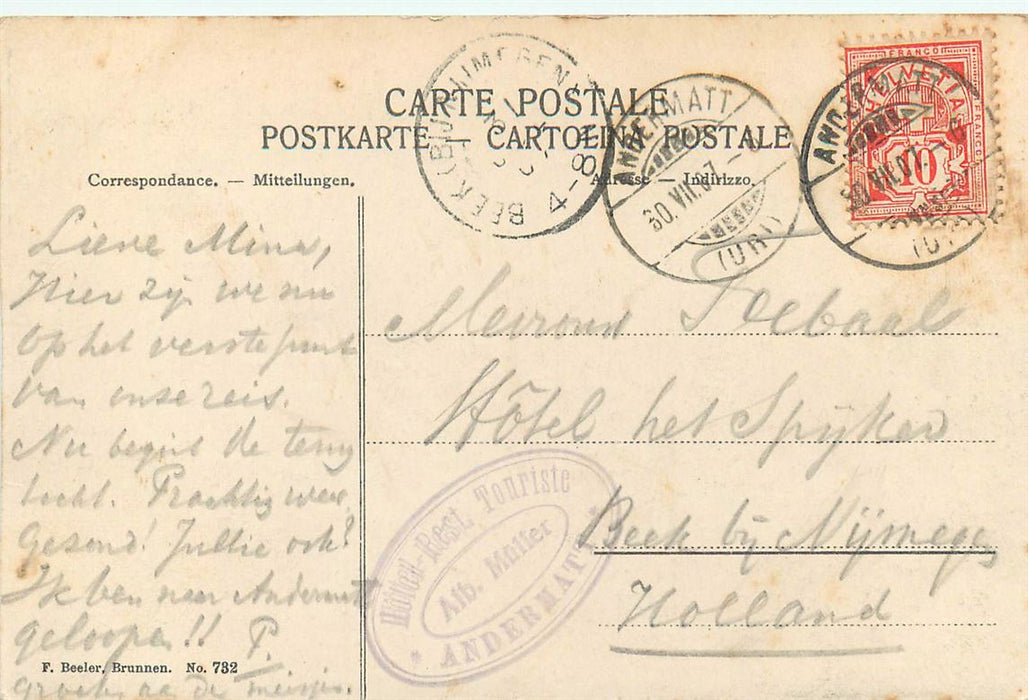 CARTE POSTALE
POSTKARTE — CARTOLINA POSTALE
Correspondance. — Mitteilungen.
Adresse — Indirizzo.
BEEK (BIJ NIJMEGEN)
4-8
ANDERMATT
30.VII.07.
(URI)
ANDERMATT
30.VII.07.
FRANCO
HELVETIA
FRANCO
10
Lieve Mina,
Hier zijn we nu
op het verste punt
van onze reis.
Nu begint de terug
tocht. Prachtig weer
Gezond! Jullie ook?
Ik ben naar Andermatt
geloopen!! P.
groeten aan de meisjes.
Mevrouw
Hôtel het Spijker
Beek bij Nijmegen
Holland
Hôtel-Rest. Touriste
Alb. Müller
* ANDERMATT
F. Beeler, Brunnen. No. 732